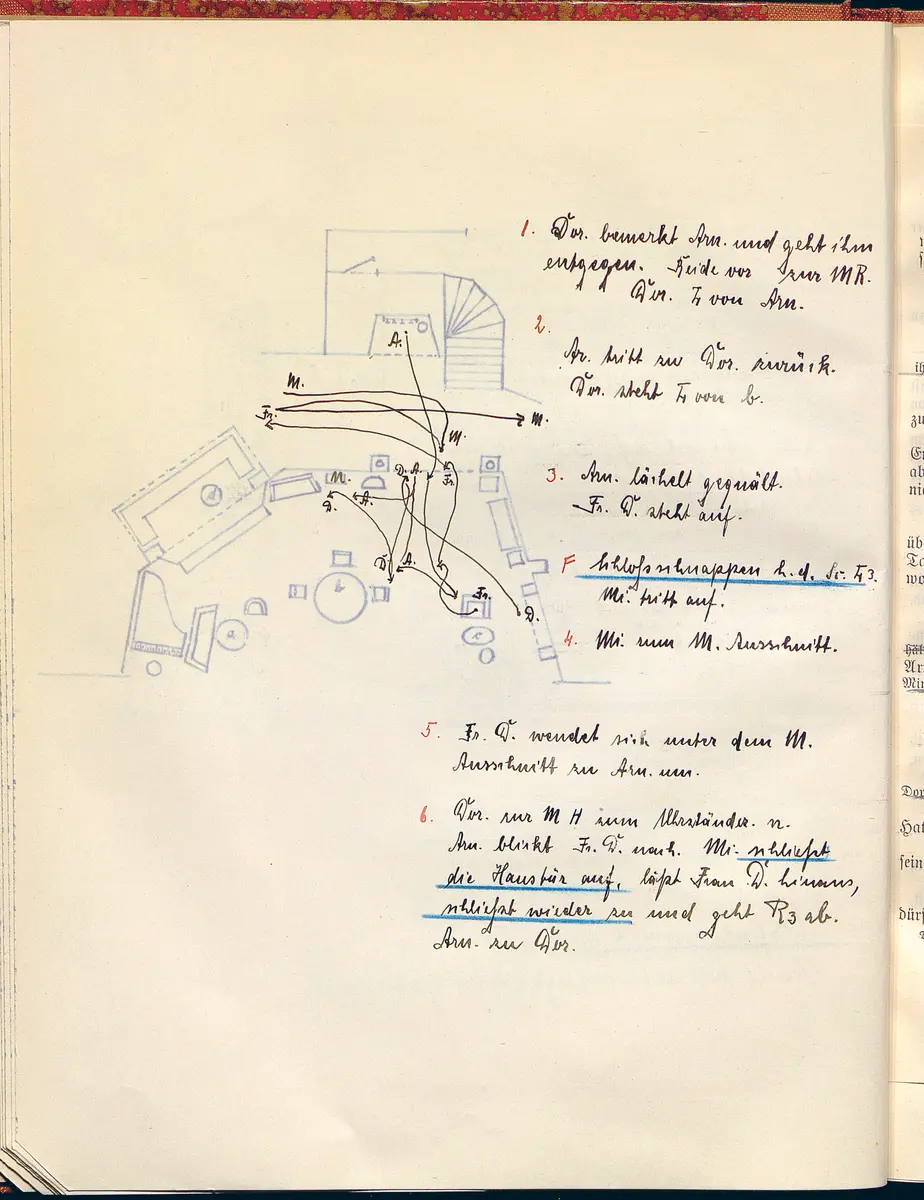 1. Dor. bemerkt Arn. und geht ihm
entgegen. Beide vor zur MR.
Dor. L von Arn.
2.
Ar. tritt zu Dor. zurück.
Dor. steht L von b.
3. Arn. lächelt gequält.
Fr. D. steht auf.
F Schlossschnappen h. d. Sc. L3.
Mi. tritt auf.
4. Mi zum M. Ausschnitt.
5. Fr. D. wendet sich unter dem M.
Ausschnitt zu Arn. um.
6. Dor. zur M H zum Uhrständer. n.
Arn. blickt Fr. D. nach. Mi. schließt
die Haustür auf, läßt Frau D. hinaus,
schließt wieder zu und geht R3 ab.
Arn. zu Dor.
A.
M.
M.
Fr.
M.
Fr.
n.
D. A.
D.
A.
D. A.
Fr.
D.
a
b
c
d